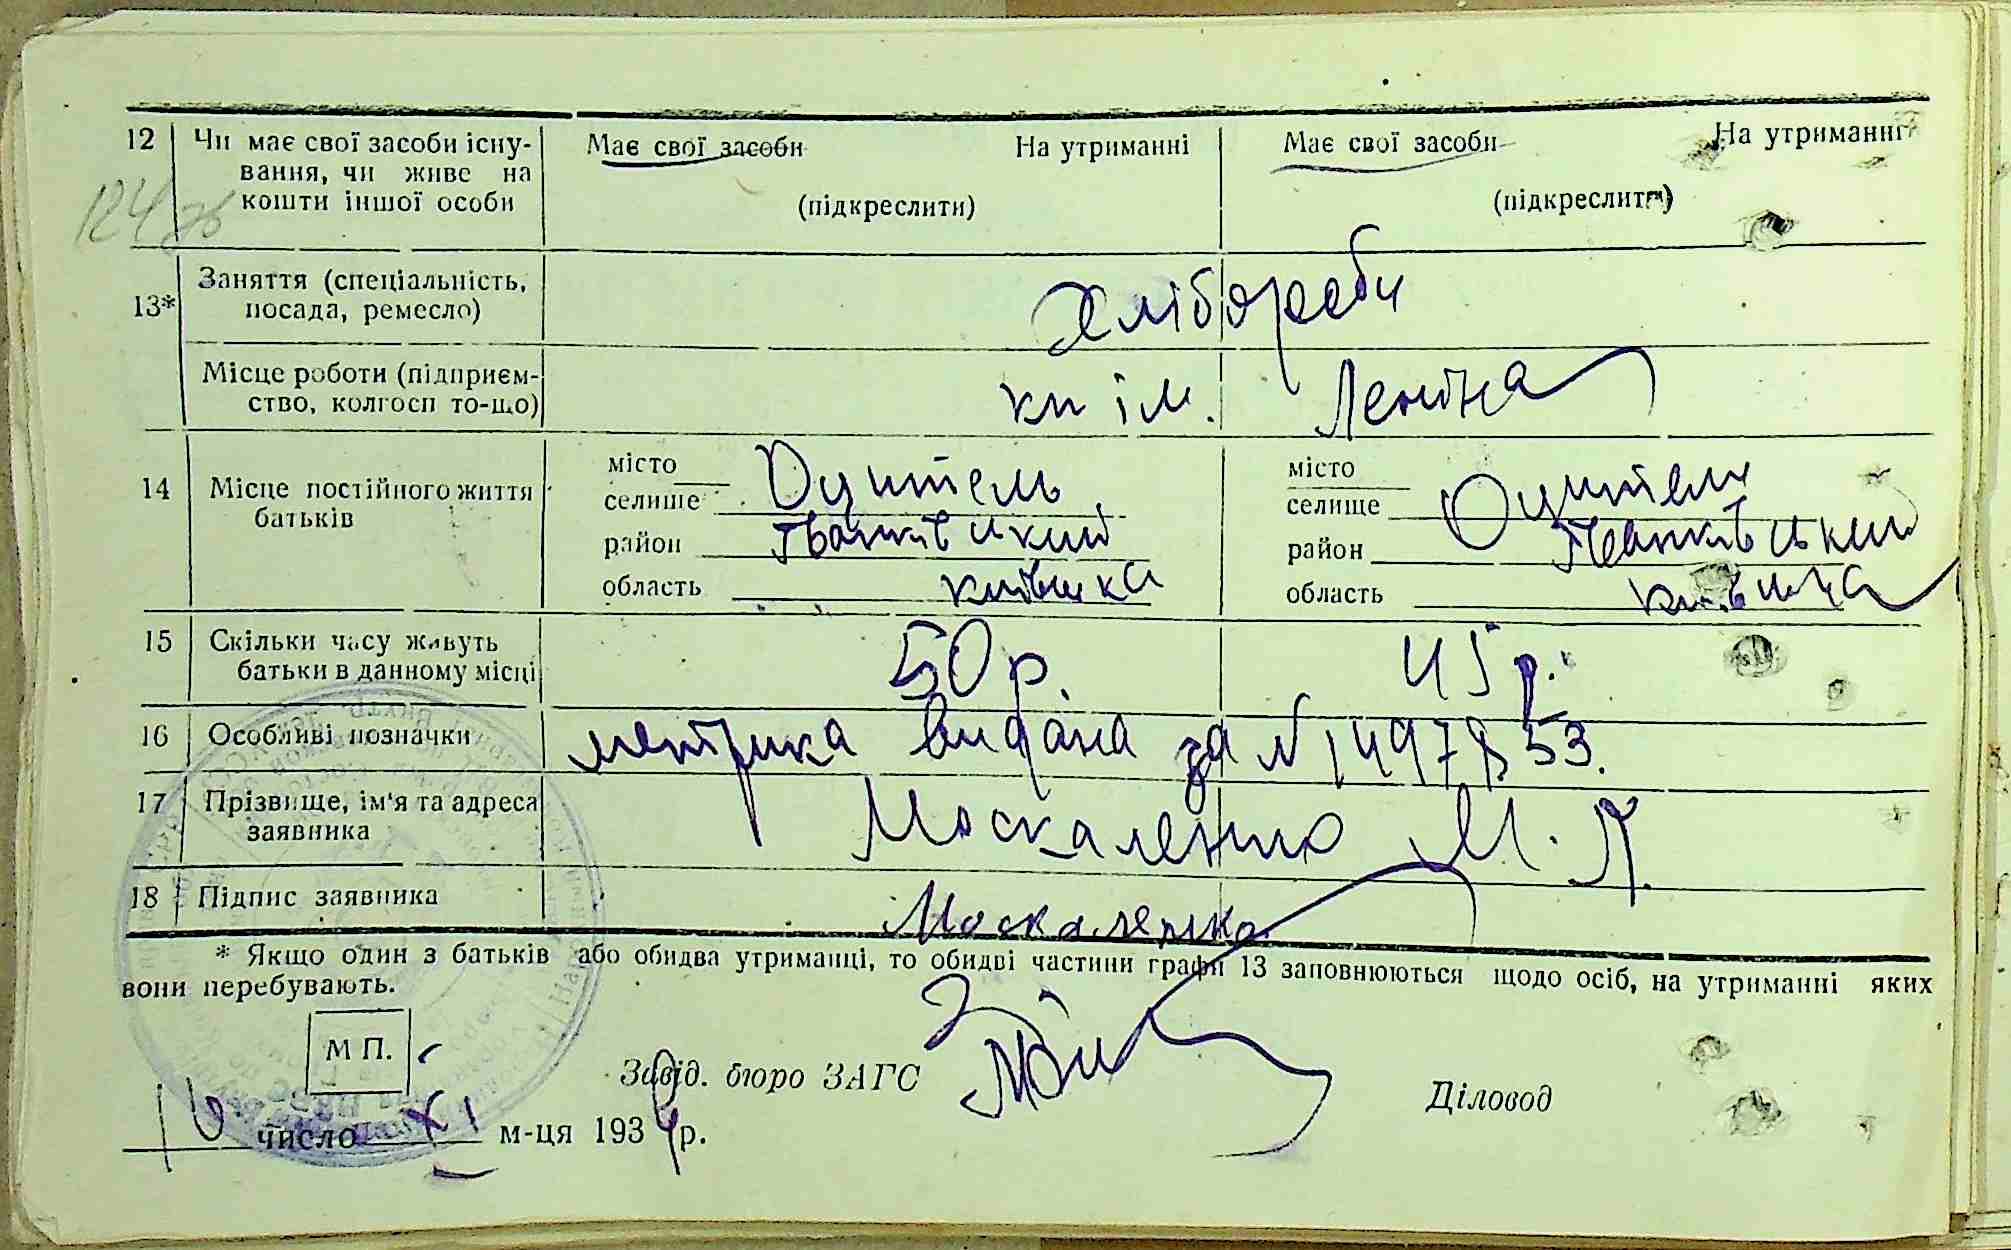 12 Чи має свої засоби існу- Має свої засоби На утриманні Має свої засоби На утриманні
вання, чи живе на
кошти іншої особи (підкреслити) (підкреслити)
124
Заняття (спеціальність, Хлібороби
13* посада, ремесло)
Місце роботи (підприєм- кп ім. Леніна
ство, колгосп то-що)
місто місто
14 Місце постійного життя селище Оцитель селище Оцитель
батьків район Іванківський район Іванківський
область київська область київська
15 Скільки часу живуть 50 р. 45 р.
батьки в данному місці
16 Особливі позначки метрика видана за №
17 Прізвище, ім'я та адреса Москаленко М. Я.
заявника
18 Підпис заявника Москаленко
* Якщо один з батьків або обидва утриманці, то обидві частини графи 13 заповнюються щодо осіб, на утриманні яких
вони перебувають.
М П.
Завід. бюро ЗАГС Діловод
16 число XI м-ця 1934 р.